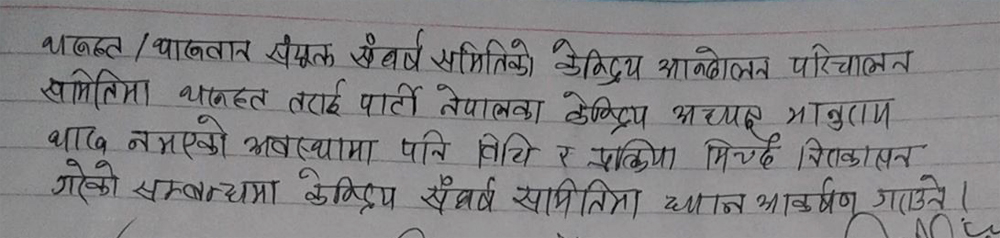 थारुहट / थारुवान संयुक्त संघर्ष समितिको केन्द्रिय आन्दोलन परिचालन
समितिमा थारुहट तराई पार्टी नेपालका केन्द्रिय अध्यक्ष भानुराम
थारु नभएको अवस्थामा पनि विधि र प्रक्रिया मिच्दै निष्कासन
गरेको सम्बन्धमा केन्द्रिय संघर्ष समितिमा ध्यान आकर्षण गराउने।